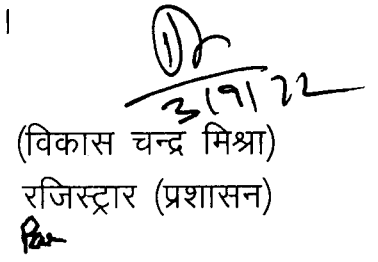 3/9/22
(विकास चन्द्र मिश्रा)
रजिस्ट्रार (प्रशासन)